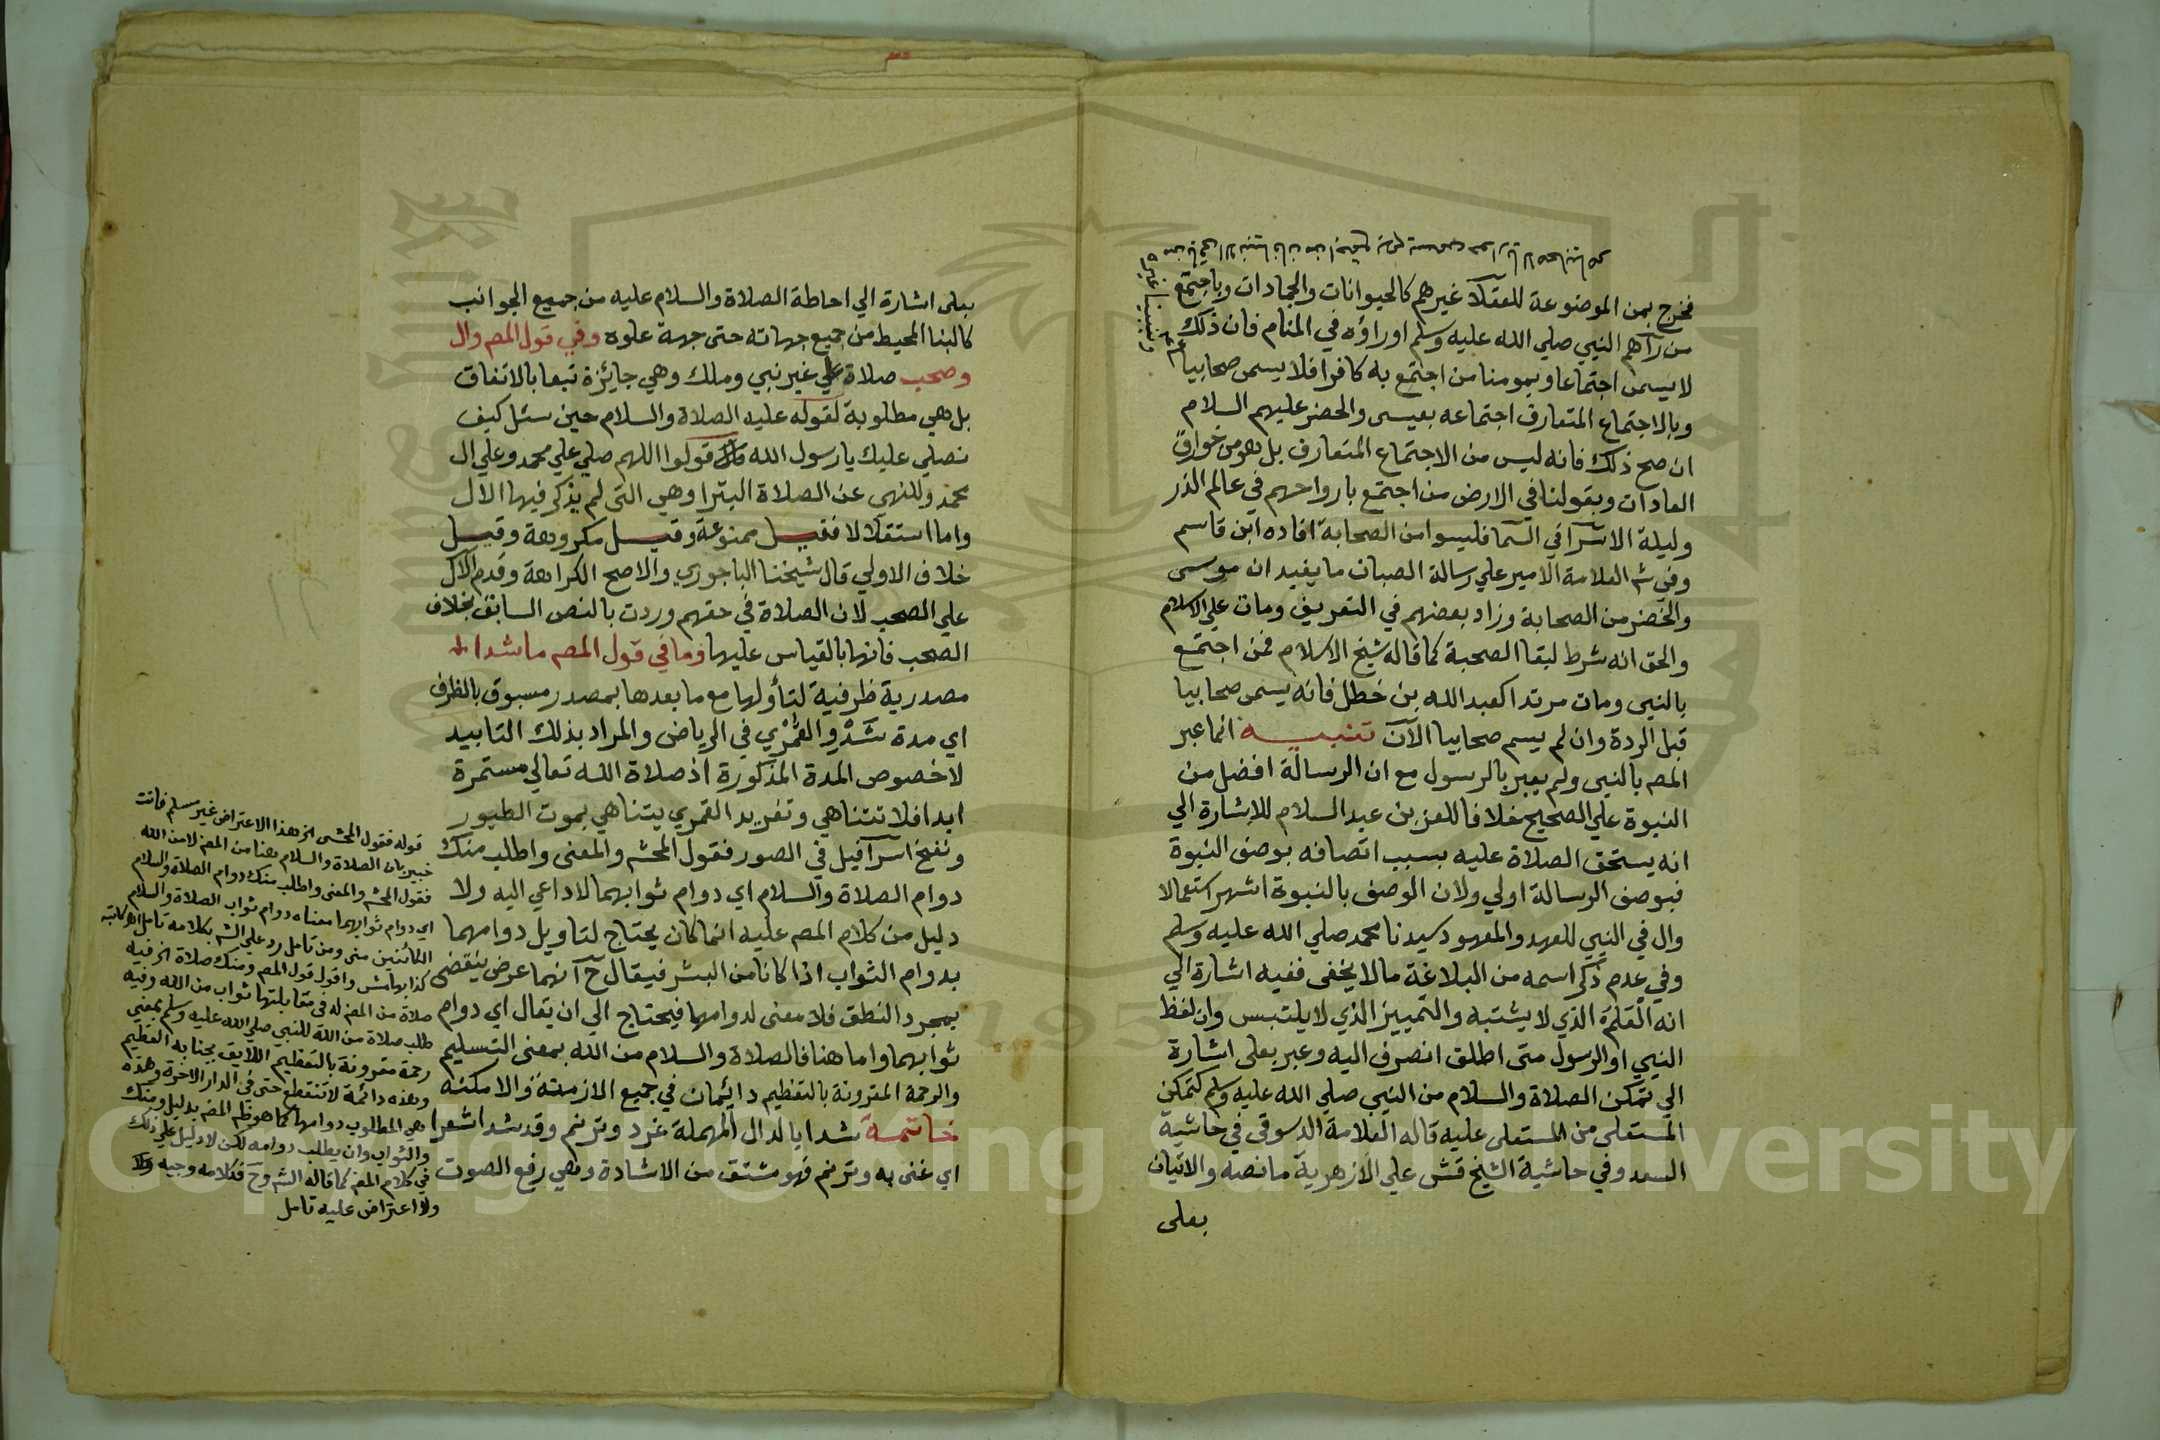 فخرج بمن الموضوعة للعقلآ غيرهم كالحيوانات والجمادات وباجتمع
من رآهم النبي صلي الله عليه وسلم اوراؤه في المنام فان ذلك
لا يسمى اجتماعا وبمومنا من اجتمع به كافرا فلا يسمى صحابيا
وبالاجتماع المتعارف اجتماعه بعيسى والخضر عليهم السلام
ان صح ذلك فانه ليس من الاجتماع المتعارف بل هو من خوارق
العادات وبقولنا في الارض من اجتمع بارواحهم في عالم الذر
وليلة الاسرآ في السما فليسوا من الصحابة افاده ابن قاسم
وفي شم العلامة الامير علي رسالة الصبان ما يفيد ان موسى
والخضر من الصحابة وزاد بعضهم في التعريف ومات علي الاسلام
والحق انه شرط لبقا الصحبة كما قاله شيخ الاسلام فمن اجتمع
بالنبي ومات مرتدا كعبد الله بن خطل فانه يسمى صحابيا
قبل الردة وان لم يسم صحابيا الآن تنبيه انما عبر
المصم بالنبي ولم يعبر بالرسول مع ان الرسالة افضل من
النبوة علي الصحيح خلافا للعز بن عبد السلام للاشارة الي
انه يستحق الصلاة عليه بسبب اتصافه بوصف النبوة
فبوصف الرسالة اولي ولان الوصف بالنبوة اشهر استعمالا
وال في النبي للعهد والمعهود سيدنا محمد صلي الله عليه وسلم
وفي عدم ذكر اسمه من البلاغة ما لا يخفى ففيه اشارة الي
انه العلم الذي لا يشتبه والتمييز الذي لا يلتبس وان لفظ
النبي او الرسول متى اطلق انصرف اليه وعبر بعلى اشارة
الي تمكن الصلاة والسلام من النبي صلي الله عليه وسلم كتمكن
المستعلى من المستعلى عليه قاله العلامة الدسوقي في حاشية
السعد وفي حاشية الشيخ قش علي الازهرية ما نصه والاتيان
بعلى
بعلى اشارة الي احاطة الصلاة والسلام عليه من جميع الجوانب
كالبنا المحيط من جميع جهاته حتى جهة علوه وفي قول المصم وال
وصحب صلاة علي غير نبي وملك وهي جايزة تبعا بالاتفاق
بل هي مطلوبة لقوله عليه الصلاة والسلام حين سئل كيف
نصلي عليك يا رسول الله قولوا اللهم صلي علي محمد وعلي ال
محمد وللنهي عن الصلاة البترا وهي التي لم يذكر فيها الال
واما استقلالا فقيل ممنوعة وقيل مكروهة وقيل
خلاف الاولي قال شيخنا الباجوري والاصح الكراهة وقدم الآل
علي الصحب لان الصلاة في حقهم وردت بالنص السابق بخلاف
الصحب فانها بالقياس عليها وما في قول المصم ما شدا الخ
مصدرية ظرفية لتأولها مع ما بعدها بمصدر مسبوق بالظرف
اي مدة شدو القمري في الرياض والمراد بذلك التابيد
لا خصوص المدة المذكورة اذ صلاة الله تعالي مستمرة
ابدا فلا تتناهي وتغريد القمري يتناهي بموت الطيور
ونفخ اسرآفيل في الصور فقول المحشم والمعنى واطلب منك
دوام الصلاة والسلام اي دوام ثوابهما لا داعي اليه ولا
دليل من كلام المصم عليه انما كان يحتاج لتاويل دوامهما
بدوام الثواب اذا كانا من البشر فيقال ح انهما عرض ينقضى
بمجرد النطق فلا معنى لدوامهما فيحتاج الي ان يقال اي دوام
ثوابهما واما هنا فالصلاة والسلام من الله بمعنى التسليم
والرحمة المقرونة بالتعظيم دايمان في جميع الازمنة والامكنه
خاتمة شدا بالدال المهملة غرد وترنم وقد شدا شعرا
اي غنى به وترنم فهو مشتق من الاشادة وهي رفع الصوت
قوله فقول المحشى الخ هذا الاعتراض غير مسلم فانت
خبير بان الصلاة والسلام هنا من المصم لا من الله
فقول المحشم والمعنى واطلب منك دوام الصلاة والسلام
اي دوام ثوابهما معناه دوام ثواب الصلاة والسلام
الكائنين منى ومن تامل رد علي الشم بكلامه تامل اهـ كاتبه
كذا بهامش واقول قول المصم ومنك صلاة الخ فيه
صلاة من المصم له في مقابلتها ثواب من الله وفيه
طلب صلاة من الله للنبي صلي الله عليه وسلم بمعني
رحمة مقرونة بالتعظيم اللايق بجنابه العظيم
وهذه دائمة لا تنقطع حتى في الدار الاخرة وهذه
هي المطلوب دوامها كما هو ظم المصم بدليل ومنك
والثواب وان يطلب دوامه لكن لا دليل علي ذلك
في كلام المصم كما قاله الشم وح فكلامه وجيه
ولا اعتراض عليه تامل
Copyright © King Saud University
1957